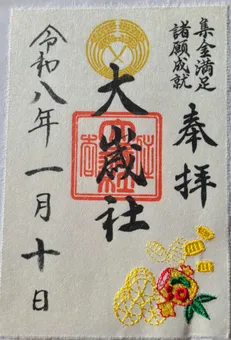 集金満足
諸願成就
奉拝
大歳社
令和八年一月十日